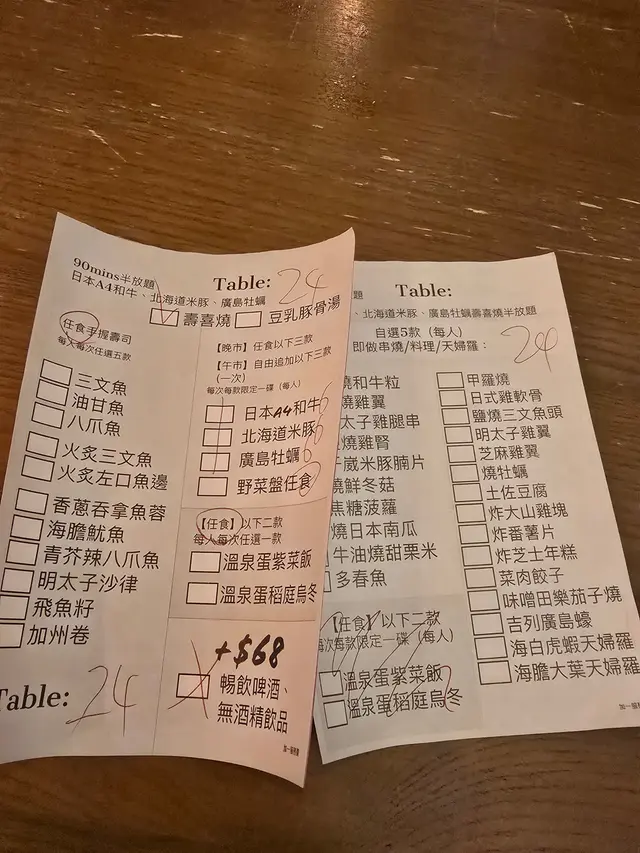 90mins半放題
日本A4和牛、北海道米豚、廣島牡蠣
Table: 24
壽喜燒
豆乳豚骨湯
任食手握壽司
每人每次任選五款
三文魚
油甘魚
八爪魚
火炙三文魚
火炙左口魚邊
香蔥吞拿魚蓉
海膽魷魚
青芥辣八爪魚
明太子沙律
飛魚籽
加州卷
Table: 24
【晚市】任食以下三款
【午市】自由追加以下三款
(一次)
每次每款限定一碟 (每人)
日本A4和牛 6
北海道米豚 6
廣島牡蠣 6
野菜盤任食
【任食】以下二款
每人每次任選一款
溫泉蛋紫菜飯
溫泉蛋稻庭烏冬
+$68
暢飲啤酒、
無酒精飲品
加一服務費
題
Table:
、北海道米豚、廣島牡蠣壽喜燒半放題
24
自選5款 (每人)
即做串燒/料理/天婦羅：
燒和牛粒
燒雞翼
太子雞腿串
燒雞腎
牛崴米豚腩片
燒鮮冬菇
焦糖菠蘿
燒日本南瓜
牛油燒甜栗米
多春魚
甲羅燒
日式雞軟骨
鹽燒三文魚頭
明太子雞翼
芝麻雞翼
燒牡蠣
土佐豆腐
炸大山雞塊
炸番薯片
炸芝士年糕
菜肉餃子
味噌田樂茄子燒
吉列廣島蠔
海白虎蝦天婦羅
海膽大葉天婦羅
【任食】以下二款
每次每款限定一碟 (每人)
溫泉蛋紫菜飯
溫泉蛋稻庭烏冬
加一服務費